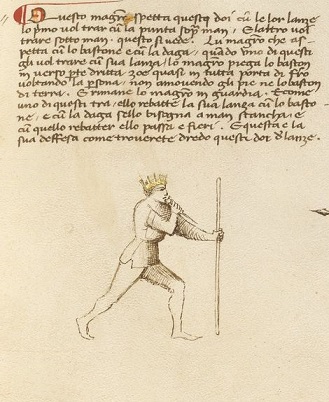 Questo magistro spetta questi doi cum le lor lanze
lo primo vol trar cum la punta sopra man, E laltro vol
trare sotto man, questo si vede. Lu magistro che as-
petta cum lo bastone e cum la daga, quado uno di questi
gli vol trare cum sua lanza, lo magistro piega lo bastone
in verso parte dritta zoe quasi in tutta porta di ferro
voltando la persona, non amovando gli pie ne lo baston
di terra. E rimane lo magistro in guardia. E come
uno di questi tra, ello rebatte la sua lanza cum lo basto-
ne, e cum la daga sello bisogna a man stancha, e
cum quello rebatter ello passa e fieri. E questa e la
sua deffesa come trouerete dredo questi doi de lanze.